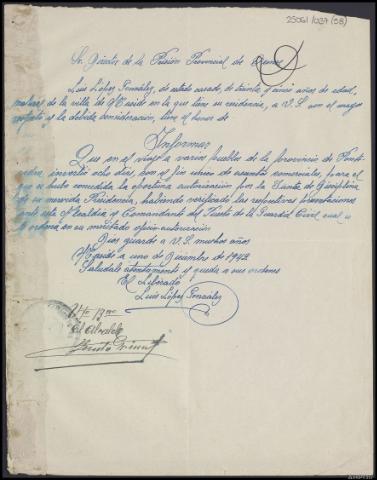 25061/037 (58)
Sr. Director de la Prisión Provincial de
Luis López González, de estado casado, de treinta y cinco años de edad,
natural de la villa de en la que tiene su residencia, a V.S. con el mayor
respeto y la debida consideración, tiene el honor de
Informar
Que en el viaje a varios pueblos de la provincia de Ponte-
vedra, invertí ocho días, por el fin único de asuntos comerciales, para el
que se hubo concedida la oportuna autorización por la Junta de Disciplina
de su merecida Presidencia, habiendo verificado las respectivas presentaciones
ante esta Alcaldía y Comandante del Puesto de la Guardia Civil, cual se
ordena en su mentado oficio-autorización.
Dios guarde a V.S. muchos años
a uno de Diciembre de 1942
Salúdale atentamente y queda a sus órdenes
El Liberado
Luis López González
El Alcalde